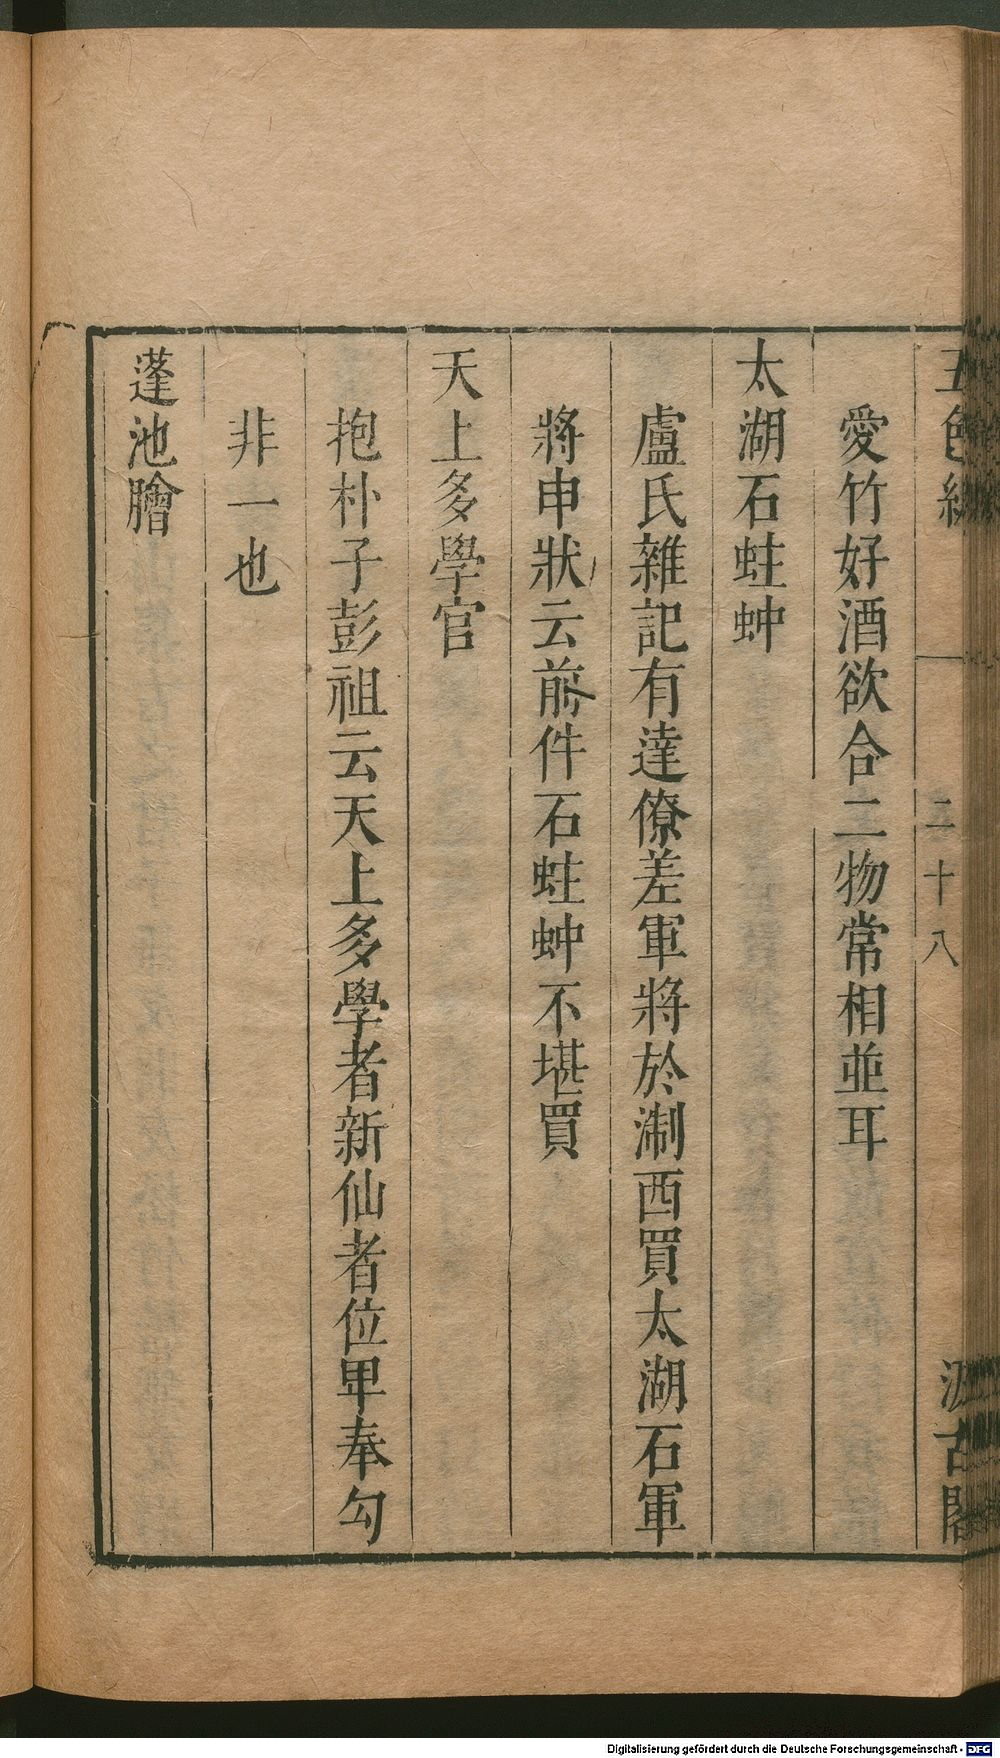 五色線
二十八
汲古閣
愛竹好酒欲合二物常相並耳
太湖石蛀蚛
盧氏雜記有達僚差軍將於淛西買太湖石軍
將申狀云前件石蛀蚛不堪買
天上多學官
抱朴子彭祖云天上多學者新仙者位卑奉勾
非一也
蓬池膾
Digitalisierung gefördert durch die Deutsche Forschungsgemeinschaft - DFG